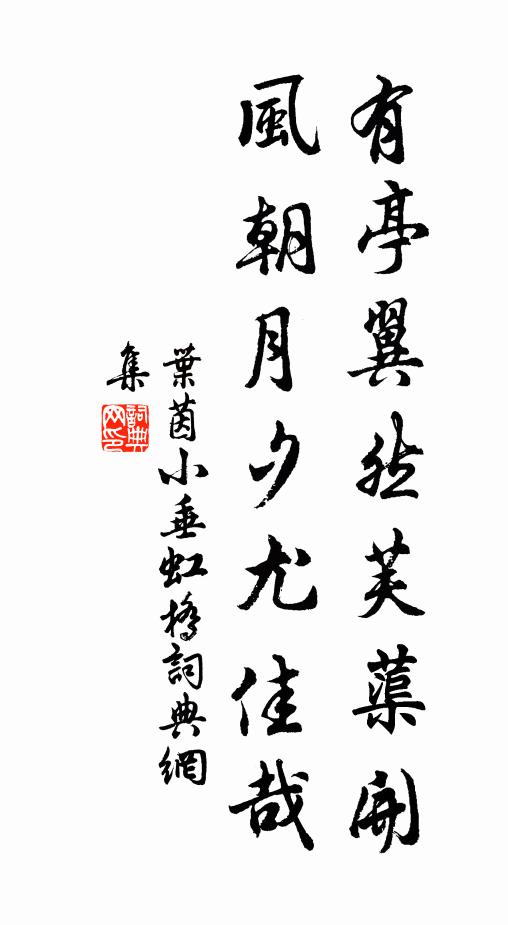 有亭翼然芙蕖開
風朝月夕尤佳哉
葉茵小垂虹橋詞典網
集
詞典网印